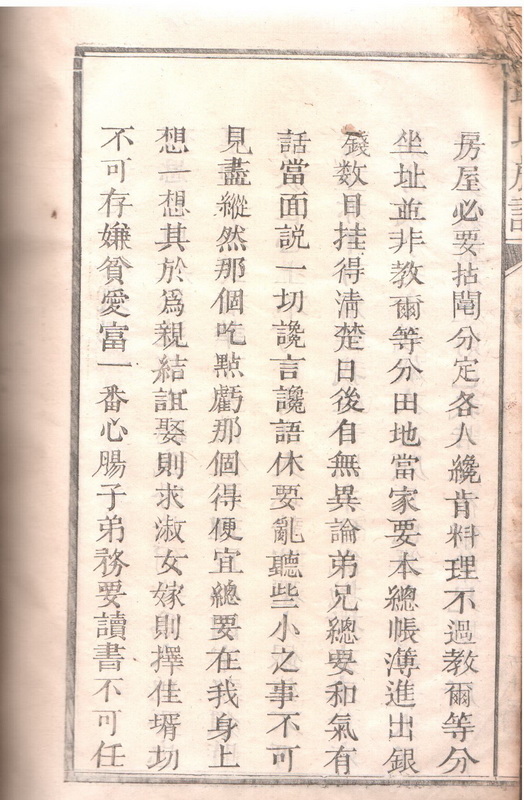 房屋必要拈鬮分定各人纔肯料理不過教爾等分
坐址並非教爾等分田地當家要本總帳薄進出銀
錢数目挂得清楚日後自無異論弟兄總要和氣有
話當面説一切讒言讒語休要亂聽些小之事不可
見盡縱然那個吃㸃虧那個得便宜總要在我身上
想一想其於爲親結誼娶則求淑女嫁則擇佳壻切
不可存嫌貧愛富一番心腸子弟務要讀書不可任